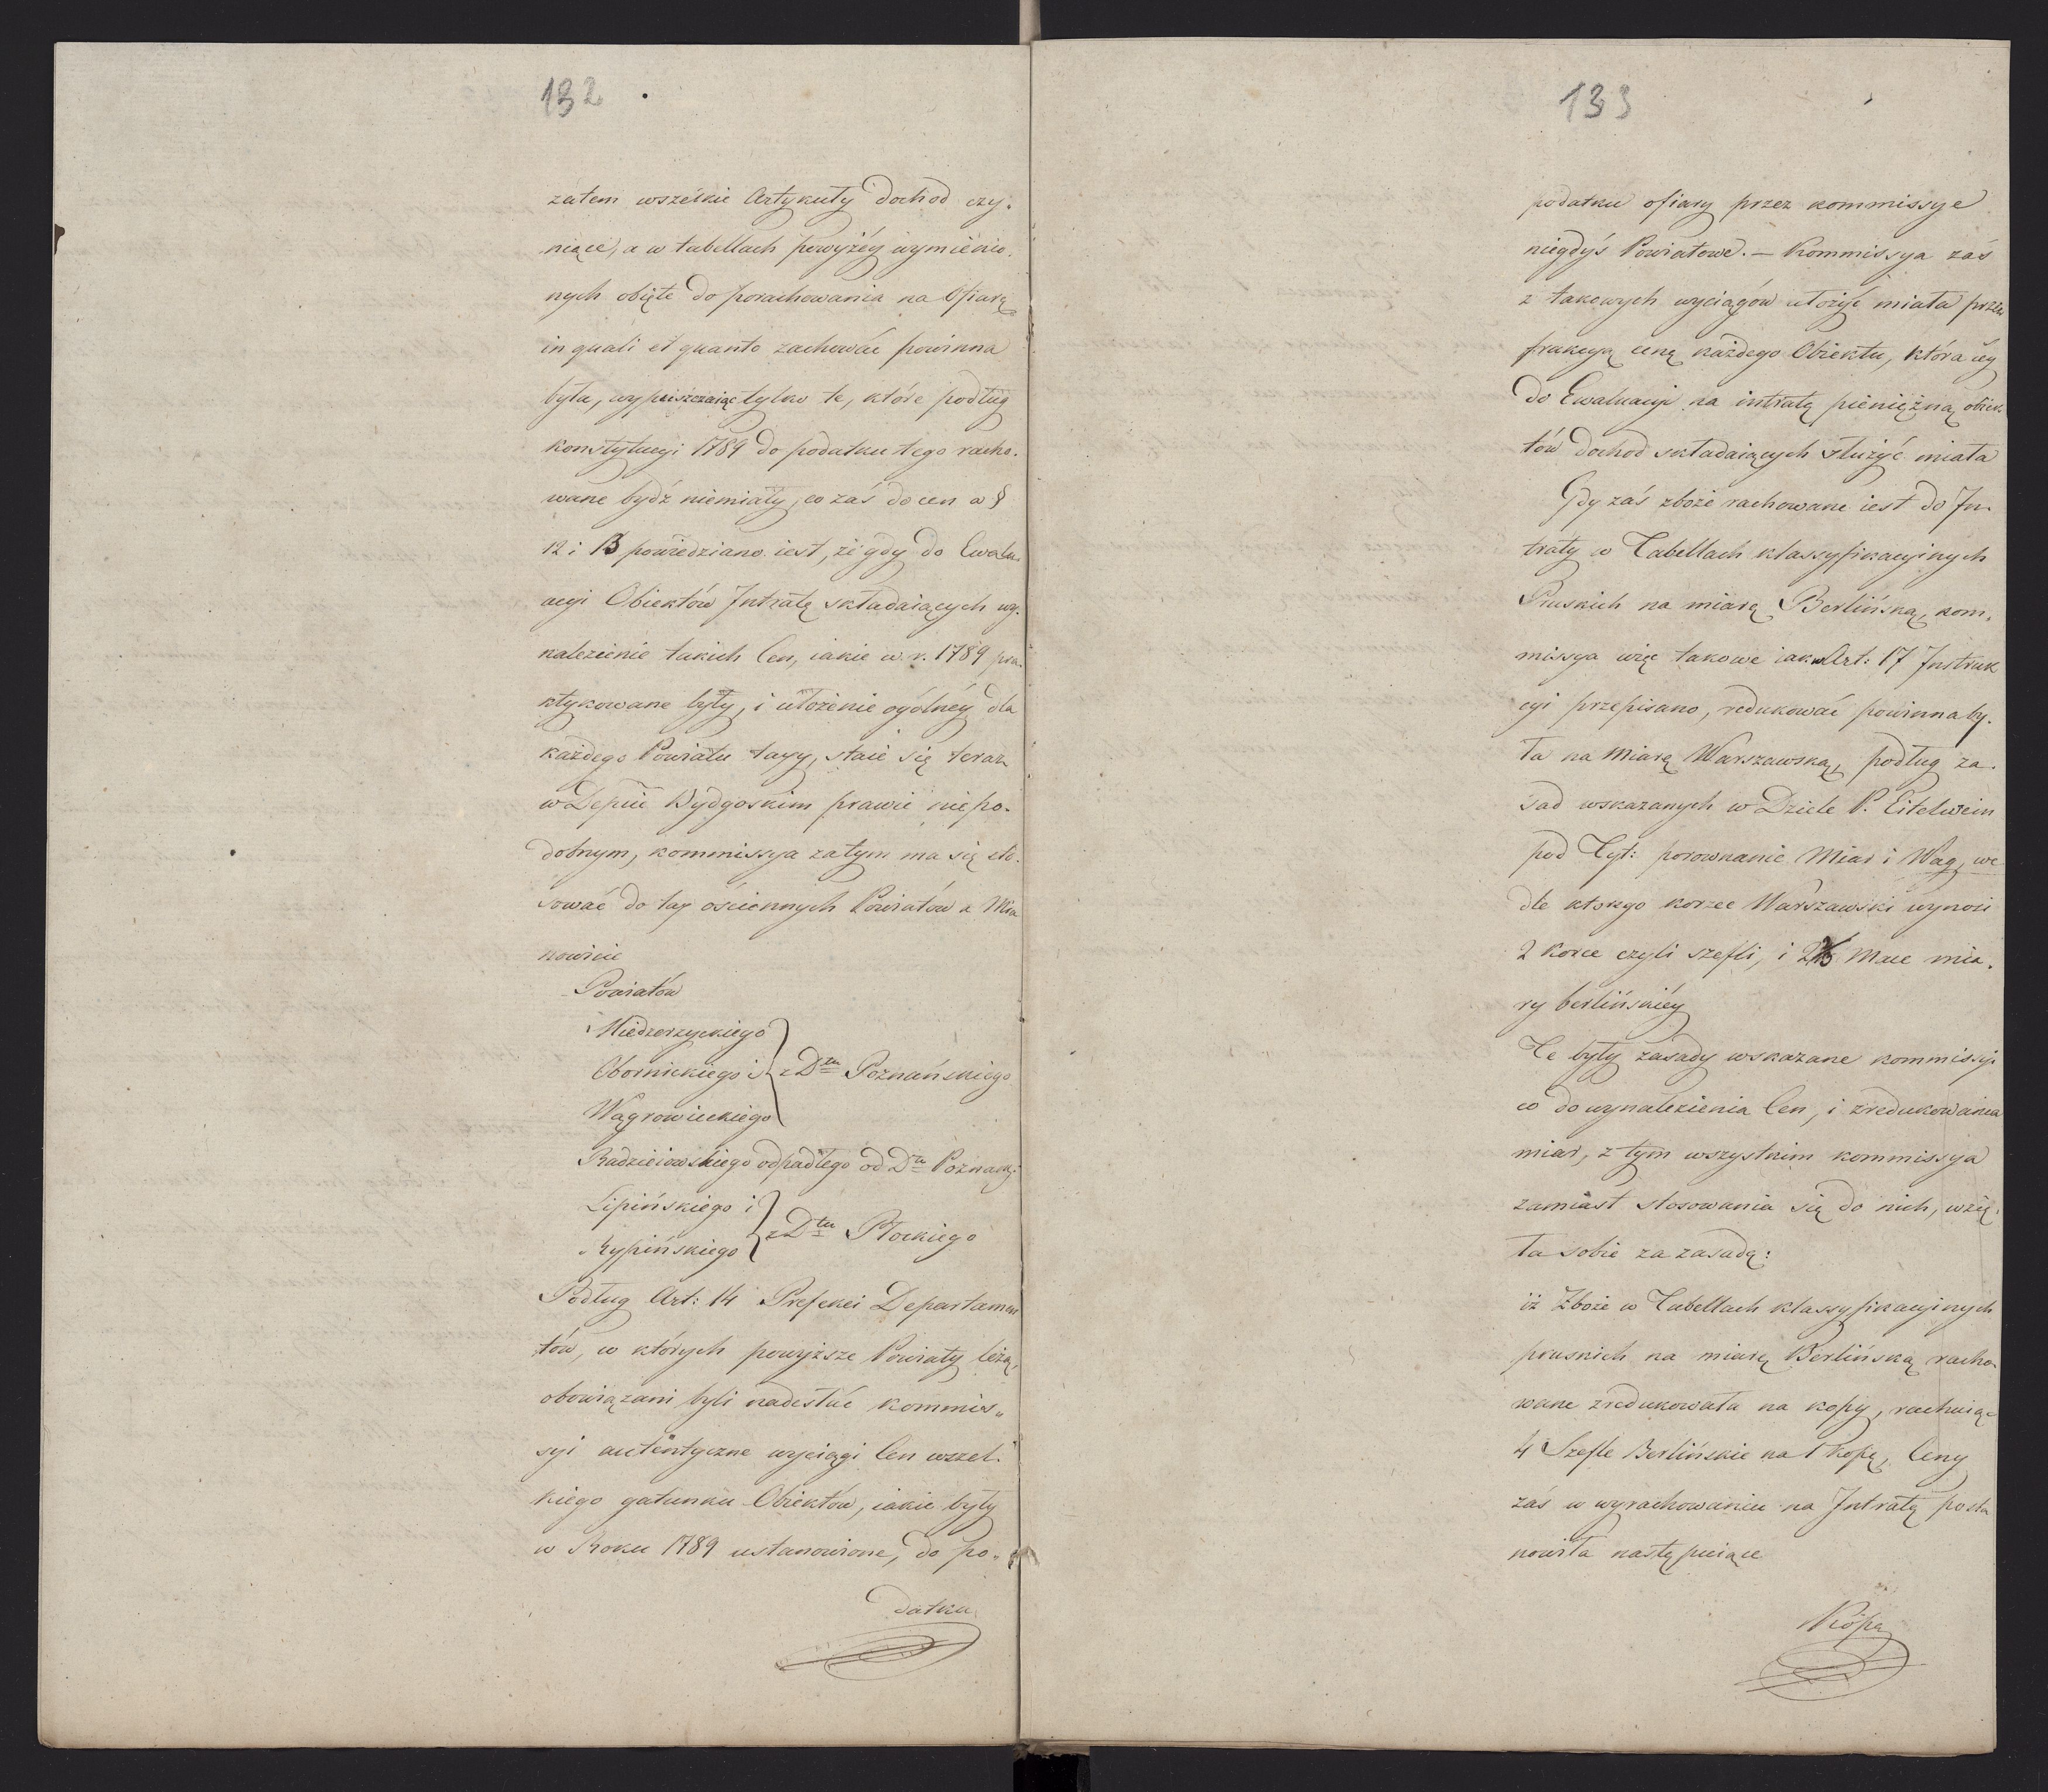 132
zatem wszelkie Artykuły dochod czy-
niące, a w tabellach powyżéy wymienio-
nych obięte do porachowania na Ofiarę
in quali et quanto zachować powinna
była, wypuszczaiąc tylko te, które podług
konstytucyi 1789 do podatku tego racho-
wane bydź niemiały, co zaś do cen w §
12 i 13 powiedziano iest, że gdy do Ewalu-
acyi Obiektów Intratę składaiących wy-
nalezienie takich Cen, iakie w r. 1789 pra-
ktykowane były, i ułożenie ogólnéy dla
każdego Powiatu taxy, staie się teraz
w Depcie Bydgoskim prawie niepo-
dobnym, kommissya zatym ma się sto-
sować do tax ościennych Powiatów a Mia
nowicie
Powiatów
Miedzerzyckiego
Obornickiego i z Dtu Poznańskiego
Wągrowieckiego
Radzieiowskiego odpadłego od Dtu Poznask:
Lipińskiego i
Rypińskiego z Dtu Płockiego
Podług Art: 14 Prefekci Departamen
tów, w których powyższe Powiaty leżą,
obowiązani byli nadesłać kommis-
syi autentyczne wyciągi Cen wszel-
kiego gatunku Obiektów, iakie były
w Roku 1789 ustanowione, do po-
datku
133
podatku ofiary przez kommissye
niegdyś Powiatowe. — Kommissya zaś
z takowych wyciągów ułożyć miała przez
frakcyą cenę każdego Obiektu, która iey
do Ewaluacyi na intratę pieniężną obiek-
tów dochod składaiących służyć miała
Gdy zaś zboże rachowane iest do In-
traty w Tabellach klassyfikacyinych
Pruskich na miarę Berlińską, kom-
missya więc takowe iak w Art: 17 Instruk
cyi przepisano, redukować powinna by-
ła na Miarę Warszawską, podług za-
sad wskazanych w Dziele P. Eitelwein
pod Tyt: porownanie Miar i Wag, we
dle ktorego korzec Warszawski wynosi
2 korce czyli szefli, i Mace mia-
ry berlińskiéy
Te były zasady wskazane kommissyi
co do wynalezienia Cen, i zredukowania
miar, z tym wszystkim kommissya
zamiast stosowania się do nich, wzię-
ła sobie za zasadę:
iż Zboże w Tabellach klassyfikacyinych
pruskich na miarę Berlińską racho-
wane zredukowała na kopy, rachuiąc
4 Szefle Berlińskie na 1 kopę, Ceny
zaś w wyrachowaniu na Intratę posta
nowiła następuiące
Kopa